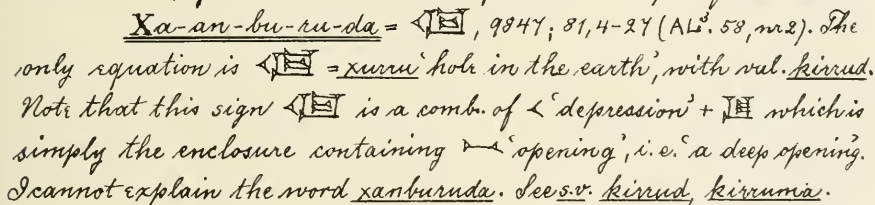 Xa-an-bu-ru-da = , 9847; 81,4-27 (AL³. 58, nr 2). The
only equation is = xurru ‘hole in the earth’, with val. kirrud.
Note that this sign is a comb. of ‘depression’ + which is
simply the enclosure containing ‘opening’, i.e. ‘a deep opening’.
I cannot explain the word xanburuda. See s.v. kirrud, kirruma.